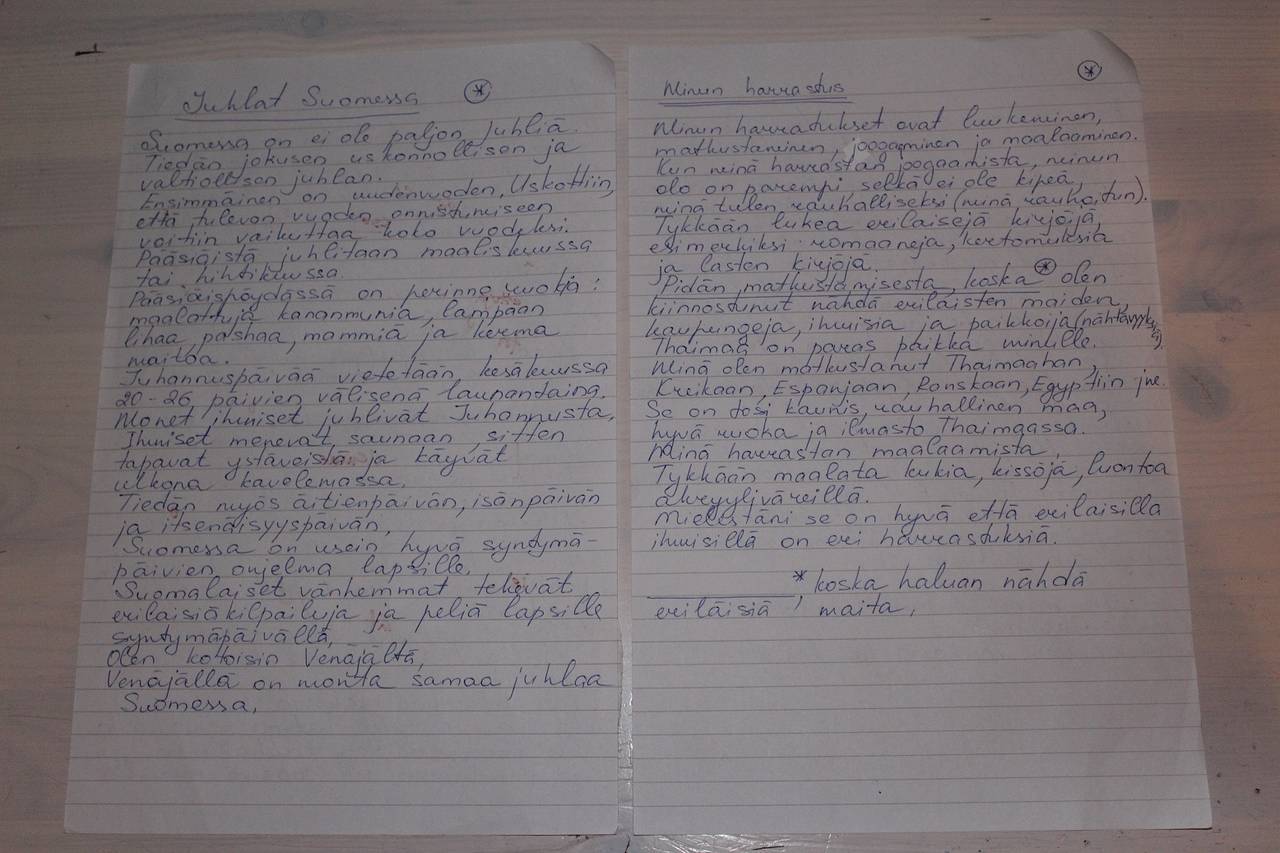 Juhlat Suomessa *
Suomessa on ei ole paljon juhliä.
Tiedän jokusen uskonnollisen ja
valtiollisen juhlan.
Ensimmäinen on uudenvuoden. Uskottiin,
että tulevan vuoden onnistumiseen
voitiin vaikuttaa koko vuodeksi.
Pääsiäistä juhlitaan maaliskuussa
tai huhtikuussa.
Pääsiäispöydässä on perinne ruokia:
maalattuja kananmunia, lampaan
lihaa, pashaa, mämmiä ja kerma
maitoa.
Juhannuspäivää vietetään kesäkuussa
20-26 päivien välisenä lauantaina.
Monet ihmiset juhlivat Juhannusta.
Ihmiset menevät saunaan, sitten
tapavat ystäveistä ja käyvät
ulkona kavelemassa.
Tiedän myös äitienpäivän, isänpäivän
ja itsenäisyyspäivän.
Suomessa on usein hyvä syntymä-
päivien onjelma lapsille.
Suomalaiset vanhemmat tekevät
erilaisia kilpailuja ja peliä lapsille
syntymäpäivällä.
Olen kotoisin Venäjältä.
Venäjällä on monta samaa juhlaa
Suomessa.
Minun harrastus *
Minun harratukset ovat lukeminen,
matkustaminen, joogaaminen ja maalaaminen.
Kun minä harrastan joogaamista, minun
olo on parempi, selkä ei ole kipeä,
minä tulen rauhalliseksi (minä rauhoitun).
Tykkään lukea erilaisejä kirjöjä,
esimerkiksi romaaneja, kertomuksia
ja lasten kirjöjä.
Pidän matkustamisesta, koska * olen
kiinnostunut nähdä erilaisten maiden,
kaupungeja, ihmisia ja paikkoija (nähtävyyksiä)
Thaimaa on paras paikka minulle.
Minä olen matkustanut Thaimaahan,
Kreikaan, Espanjaan, Ranskaan, Egyptiin jne.
Se on tosi kaunis, rauhallinen maa,
hyvä ruoka ja ilmasto Thaimaassa.
Minä harrastan maalaamista.
Tykkään maalata kukia, kissöjä, luontoa
akryyliväreillä.
Mielestäni se on hyvä että erilaisilla
ihmisillä on eri harrastuksiä.
* koska haluan nähdä
eriläisiä, maita.